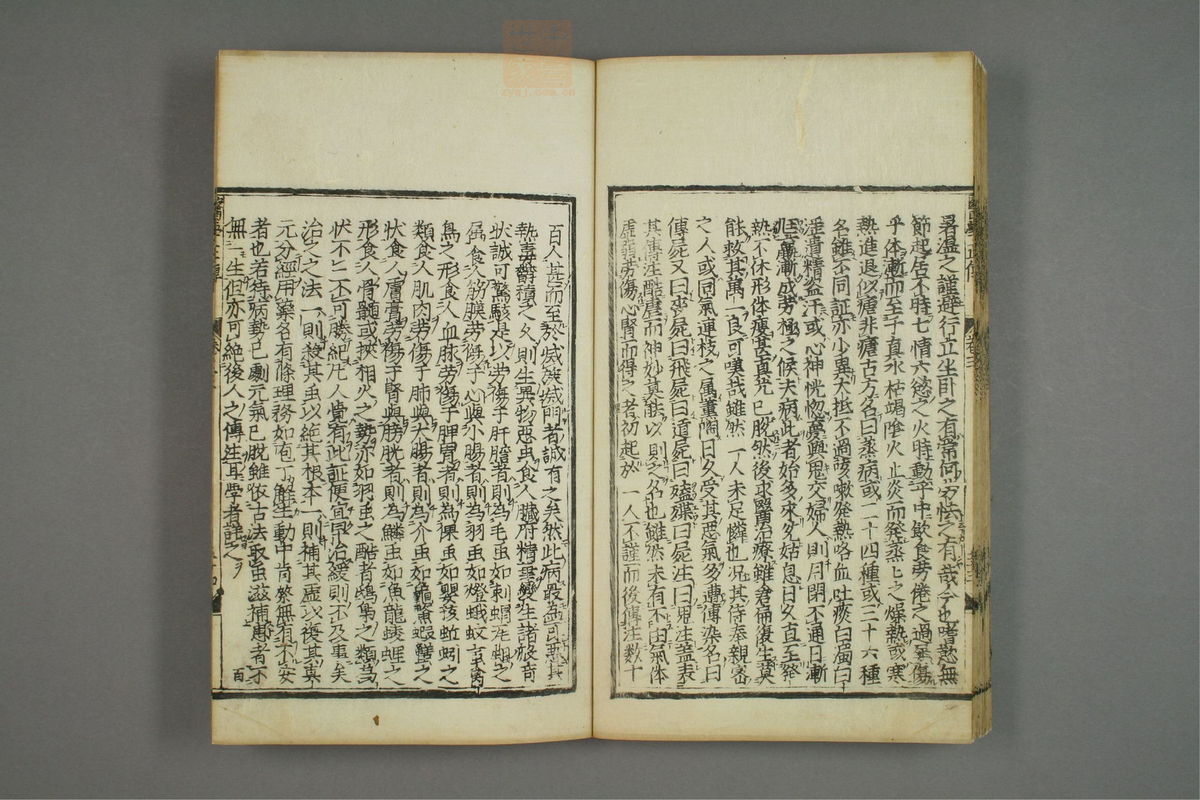 暑溫之謹避行立坐臥之有常何勞怯之有哉今也嗜慾無
節起居不時七情六慾之火時動乎中飲食勞倦之過屢傷
乎体漸而至于真水枯竭陰火上炎而發蒸〻之燥熱或寒
熱進退似瘧非瘧古方名曰蒸病或二十四種或三十六種
名雖不同証亦少異大抵不過咳嗽發熱咯血吐痰白濁白
淫遺精盜汗或心神恍惚夢與鬼交婦人則月閉不通日漸
尫羸漸成勞極之候夫病此者始多不以姑息日久直至發
熱不休形体瘦甚真元已脫然後求醫治療雖倉扁復生莫
能救其萬一良可嘆哉雖然一人未足憐也况其侍奉親密
之人或同氣連枝之属薰陶日久受其惡氣多遭傳染名曰
傳屍又曰喪屍曰飛屍曰遁屍曰殗殜曰屍注曰鬼注蓋表
其傳注酷虐而神妙莫能以則之名也雖然未有不由氣体
虛弱勞傷心腎而得之者初起於一人不謹而後傳注數十
百人甚而至於滅族滅門者誠有之矣然此病最為可惡其
熱毒鬱積之久則生異物惡虫食人臟府精華變生諸般奇
状誠可驚駭是以勞傷于肝膽者則為毛虫如刺蝟瓦蛆之
属食人筋膜勞傷于心與小腸者則為羽虫如燈蛾蚊䖟禽
鳥之形食人血脉勞傷于脾胃者則為倮虫如嬰孩蚯蚓之
類食人肌肉勞傷于肺與大腸者則為介虫如龜鱉蝦蟹之
状食人膚膏勞傷于腎與膀胱者則為鱗虫如魚龍鯪鯉之
形食人骨髓或挾相火之勢亦如羽虫之酷者鴟梟之類為
状不一不可勝紀凡人覺有此証便宜早治緩則不及事矣
治之之法一則殺其虫以絕其根本一則補其虛以復其真
元分經用藥各有條理務如庖丁解牛動中肯綮無有不安
者也若待病勢已劇元氣已脫雖依古法取虫滋補患者不
無一生但亦可絕後人之傳注耳學者詳之
百